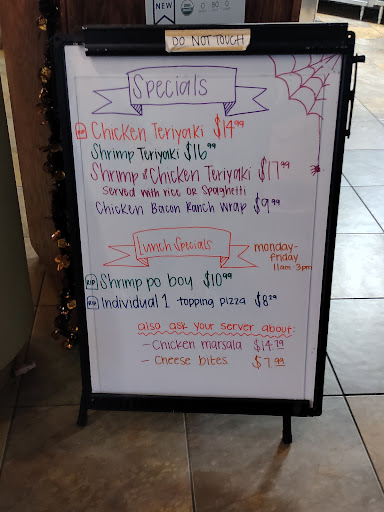 NEW
DO NOT TOUCH
Specials
Chicken Teriyaki $14.99
Shrimp Teriyaki $16.99
Shrimp & Chicken Teriyaki $17.99
served with rice or spaghetti
Chicken Bacon Ranch Wrap $9.99
Lunch Specials
monday-
friday
11am-3pm
RIP Shrimp po boy $10.99
RIP Individual 1 topping pizza $8.29
also ask your server about:
- Chicken marsala $14.29
- Cheese bites $7.99